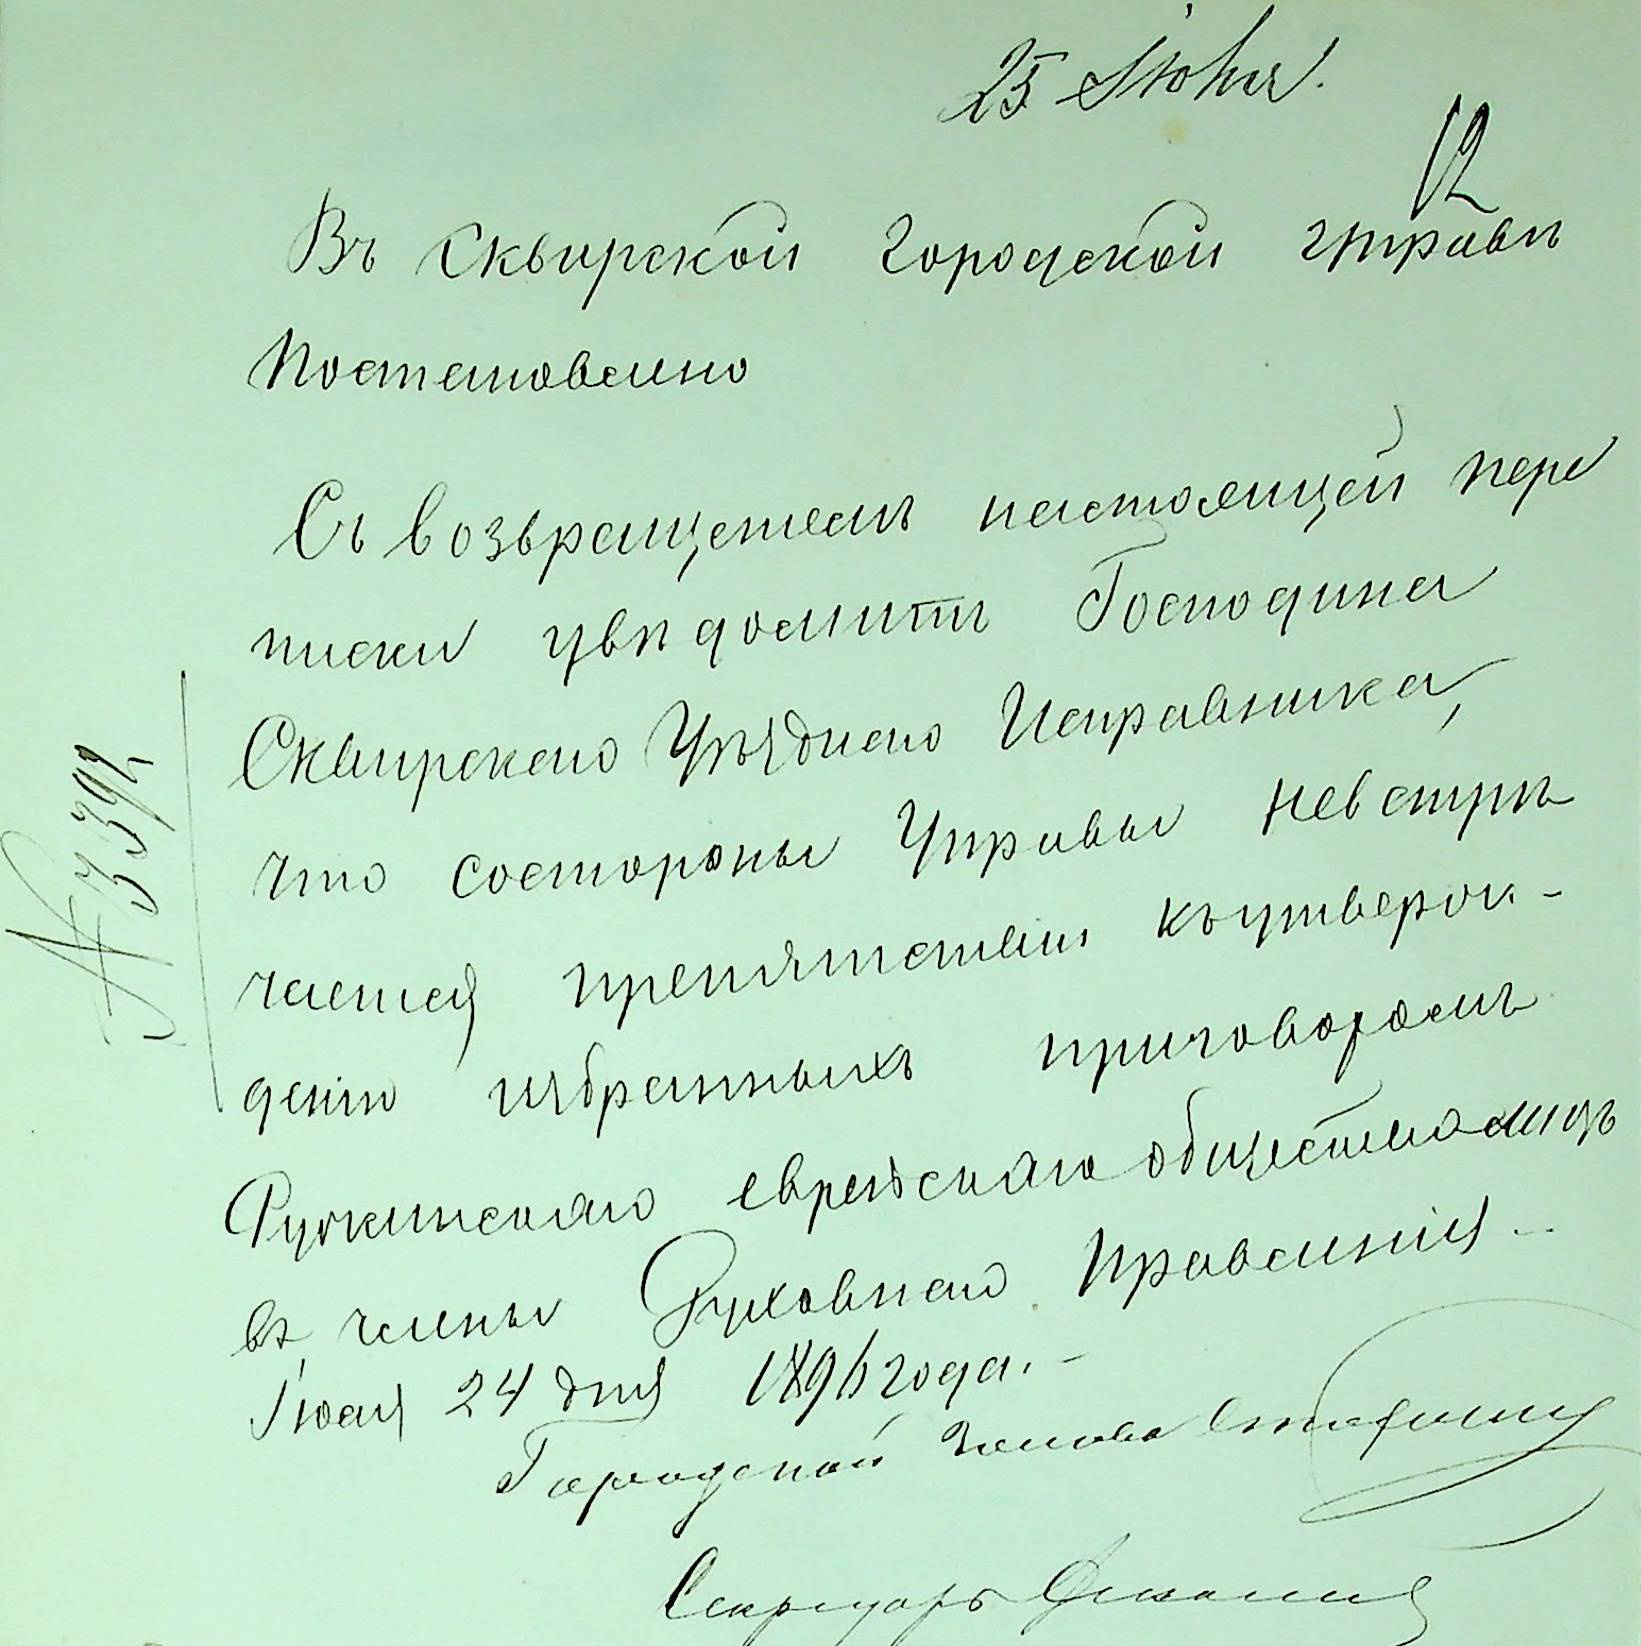 25 Іюня.
12
Въ Сквирской городской управѣ
Постановлено
Съ возвращеніемъ настоящей пере
писки увѣдомить Господина
Сквирскаго Уѣзднаго Исправника,
что состороны Управы невстрѣ
чается препятствій къ утверж-
денію избранныхъ приговоромъ
Ружинскаго еврейскаго общества лицъ
въ члены Духовнаго Правленія
Іюня 24 дня 1896 года.
Городской Голова
Секретарь
№ 3392